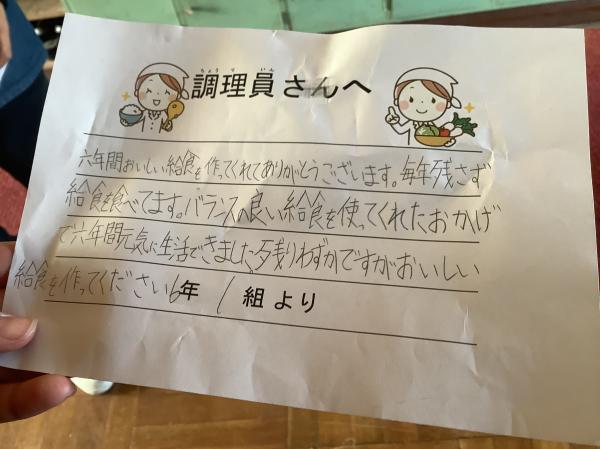 調理員さんへ
ちょうりいん
六年間おいしい給食を作ってくれてありがとうございます。毎年残さず
給食を食べてます。バランスの良い給食を使ってくれたおかげ
で六年間元気に生活できました。残りわずかですがおいしい
給食を作ってください6年 1 組より